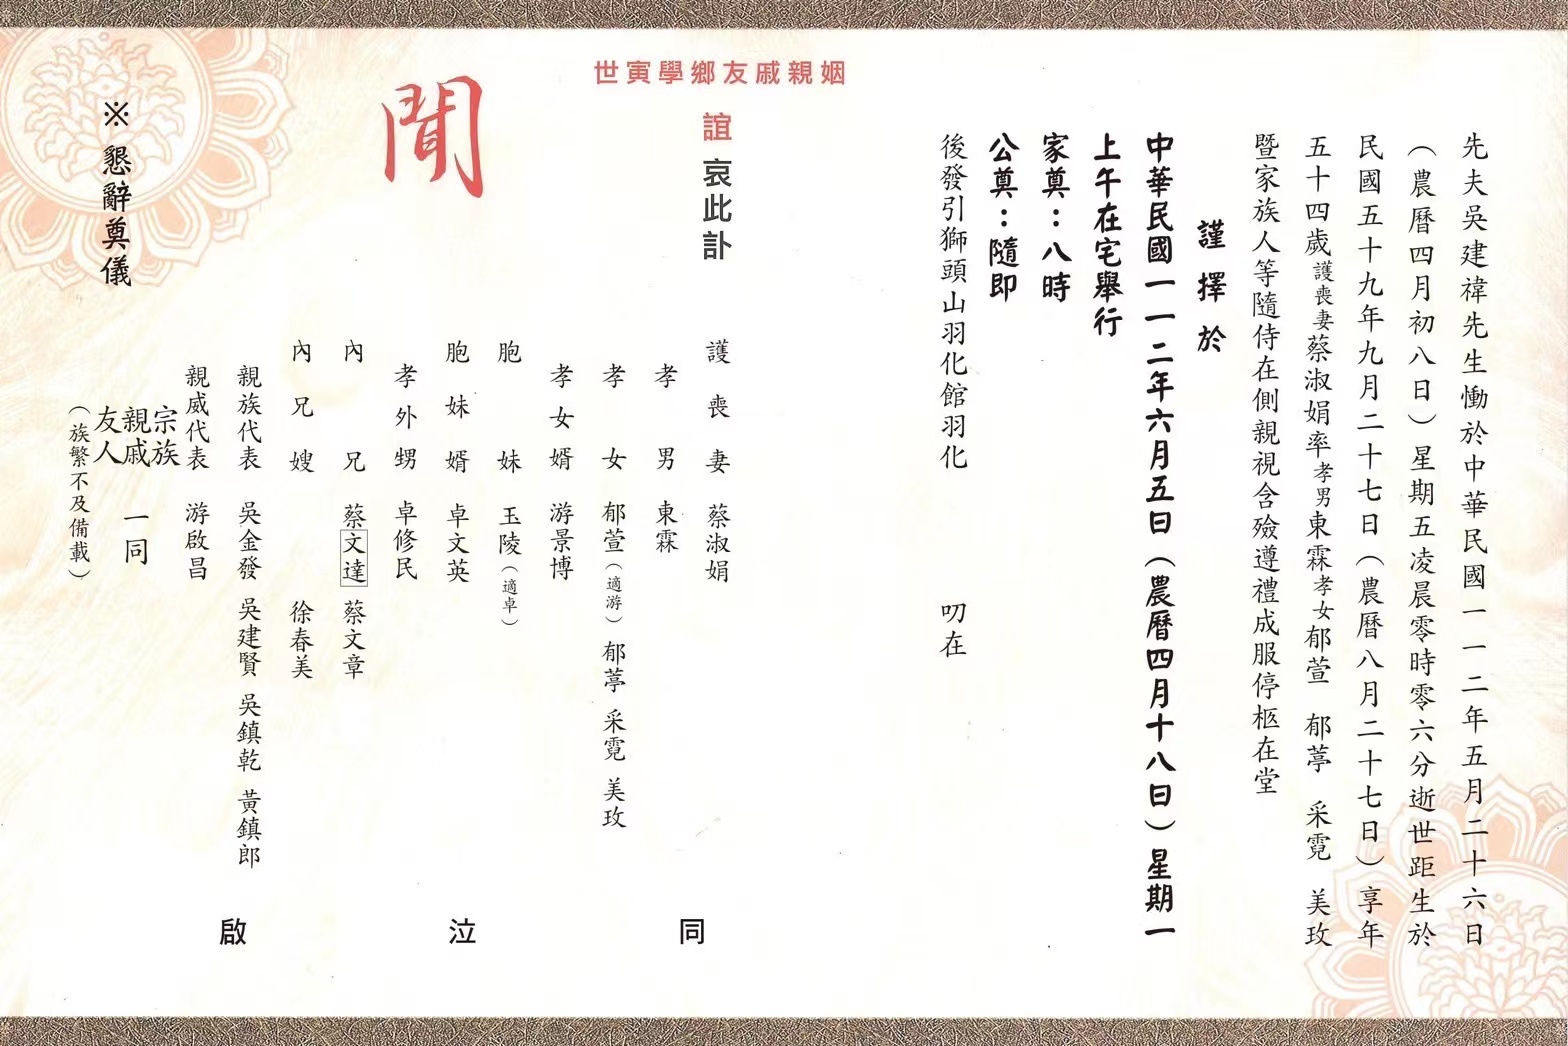 先夫吳建禕先生慟於中華民國一一二年五月二十六日
（農曆四月初八日）星期五凌晨零時零六分逝世距生於
民國五十九年九月二十七日（農曆八月二十七日）享年
五十四歲護喪妻蔡淑娟率孝男東霖孝女郁萱 郁葶 采霓 美玫
暨家族人等隨侍在側親視含殮遵禮成服停柩在堂
謹擇於
中華民國一一二年六月五日（農曆四月十八日）星期一
上午在宅舉行
家奠：八時
公奠：隨即
後發引獅頭山羽化館羽化 叨在
姻親戚友鄉學寅世
誼 哀此訃
聞
護喪妻 蔡淑娟
孝男 東霖
孝女 郁萱（適游） 郁葶 采霓 美玫
孝女婿 游景博
胞妹 玉陵（適卓）
胞妹婿 卓文英
孝外甥 卓修民
內兄 蔡文達 蔡文章
內兄嫂 徐春美
親族代表 吳金發 吳建賢 吳鎮乾 黃鎮郎
親戚代表 游啟昌
宗族
親戚 一同
友人
（族繁不及備載）
同 泣 啟
※懇辭奠儀